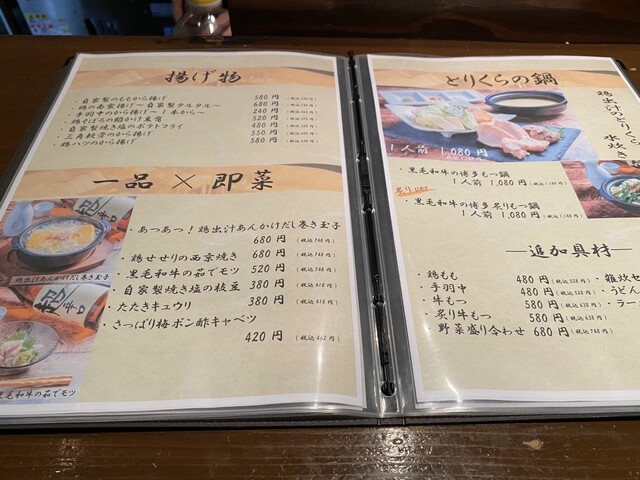 揚げ物
・自家製のももから揚げ 580円
・鶏の南蛮揚げ～自家製タルタル～ 680円
・手羽中のから揚げ～1本から～ 240円
・鶏そぼろの餡かけ豆腐 520円
・自家製焼き塩のポテトフライ 480円
・三角軟骨のから揚げ 550円
・鶏ハツのから揚げ 580円
一品×即菜
・あつあつ！鶏出汁あんかけだし巻き玉子
680円(税込748円)
・鶏せせりの西京焼き 680円(税込748円)
・黒毛和牛の品でモツ 520円
・自家製焼き塩の枝豆 380円(税込418円)
・たたきキュウリ 380円(税込418円)
・さっぱり梅ポン酢キャベツ
420円(税込462円)
鶏出汁あんかけだし巻き玉子
黒毛和牛の品でモツ
とりくらの鍋
鶏出汁のとりくら
水炊き
1人前 1,080円
・黒毛和牛の博多もつ鍋
1人前 1,080円
炙りver
・黒毛和牛の博多炙りもつ鍋
1人前 1,080円
―追加具材―
・鶏もも 480円(税込528円)
・手羽中 480円(税込528円)
・牛もつ 580円(税込638円)
・炙り牛もつ 580円(税込638円)
・野菜盛り合わせ 680円(税込748円)
・雑炊セ
・うどん
・ラー